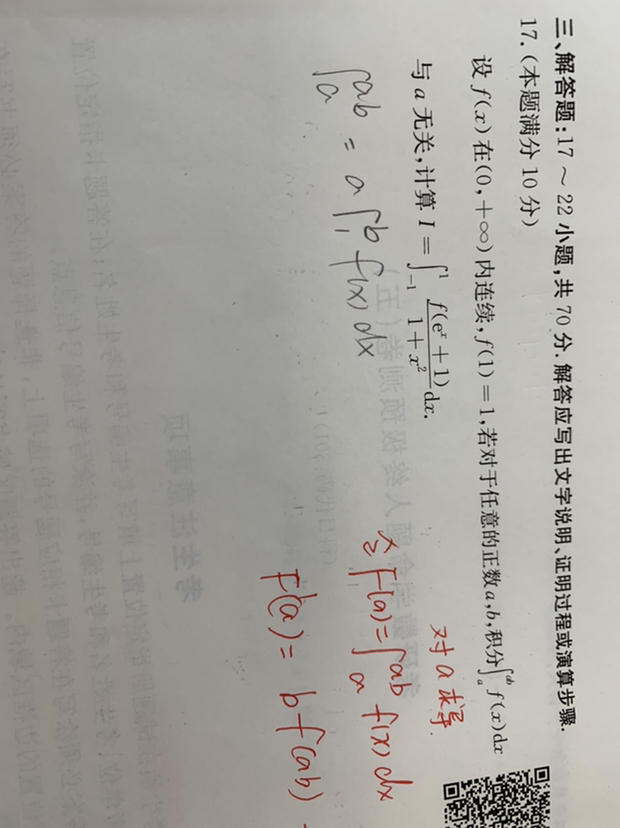 三、解答题:17～22小题,共70分.解答应写出文字说明、证明过程或演算步骤.
17.(本题满分10分)
设 f(x)在(0,+∞)内连续,f(1)=1,若对于任意的正数a,b,积分∫_a^{ab} f(x)dx
与a无关,计算 I=∫_{-1}^{1} \frac{f(e^x+1)}{1+x^2}dx.
∫_a^{ab} = a∫_1^b f(x)dx
对a求导.
F(a)=∫_a^{ab} f(x)dx
F'(a)= b f(ab) -